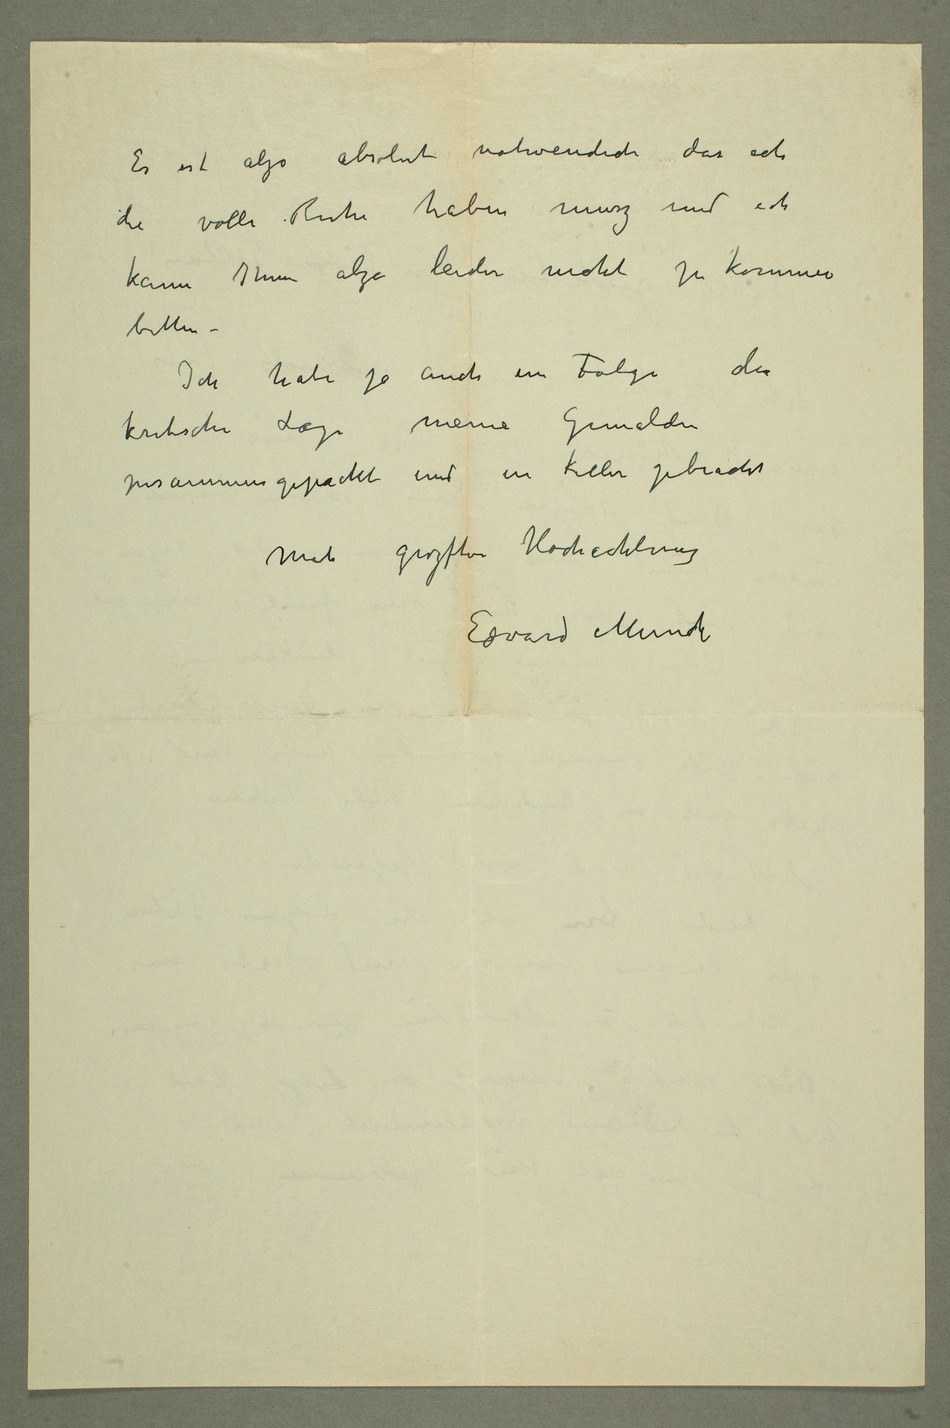 Es ist also absolut notwendich das ich
die volle Ruhe haben musz und ich
kann Ihnen also leider nicht zu kommen
bitten –
Ich habe ja auch in Folge der
kritische Lage meine Gemälden
zusammengepackt und in Keller gebracht
Mit grozster Hochachtung
Edvard Munch